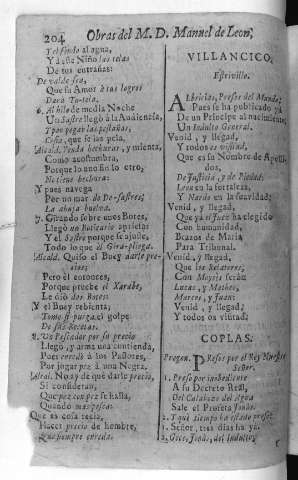 204 Obras del M. D. Manuel de Leon;
Y el fondo al agua,
Y à este Niño las telas
De sus entrañas:
De valde sea,
Que su Amor à tus logros
Darà
6. Al hilo de media Noche
Un Sastre llegò à la Audiencia,
Y por pegar las pestañas,
que se las pela,
Alcald. Venda hechuras, y mienta,
Como acostumbra,
Porque lo uno sin lo otro,
No tiene hechura:
Y pues navega
Por un mar de De-sastres;
La abuja buelva.
7. Girando sobre unos Botes,
Llegò un Boticario
Y el Sastre porque se ajuste,
Todo lo que di
Alcald. Quiso el Buey darle
Pero èl entonces,
Porque pruebe el Xarabe,
Le diò dos Botes:
Y el Buey rebienta,
Tome si purga el golpe
De sus Recetas.
8. Un Pescador por su precio
Llegò, y arma una contienda,
Pues à los Pastores,
Por jugar pez à una Negra.
Alcal. No ay de què darle precio,
Si consideran,
Que pez con pez se halla,
Quando mas pesca:
Que es cosa recia,
Hacer precio de hombre,
Que siempre
VILLANCICO.
Estrivillo.
Albricias, Presos del Mundo,
Pues se ha publicado yà
De un Principe al nacimiento
Un Indulto General.
Venid, y llegad,
Y todos os visitad,
Que es su Nombre de Apelli-
dos,
De Justicia, y de Piedad:
Leon en la fortaleza,
Y Nardo en la suavidad;
Venid, y llegad,
Que ya el Juez ha elegido
Con humanidad,
Brazos de Maria
Para Tribunal.
Venid, y llegad,
Que los Relatores;
Con Moysès seràn
Lucas, y Matheo,
Marcos, y Juan:
Venid, y llegad,
Y todos os visitad;
COPLAS.
Pregon. Presos por el Rey Nuestro
Señor.
1. Preso por inobediente
A su Decreto Real,
Del Calabozo del Agua
Sale el Profeta Jonàs.
2. Y què tiempo ha estado preso?
1. Señor, tres dias ha ya.
2. Goce, Jonàs, del Indulto,